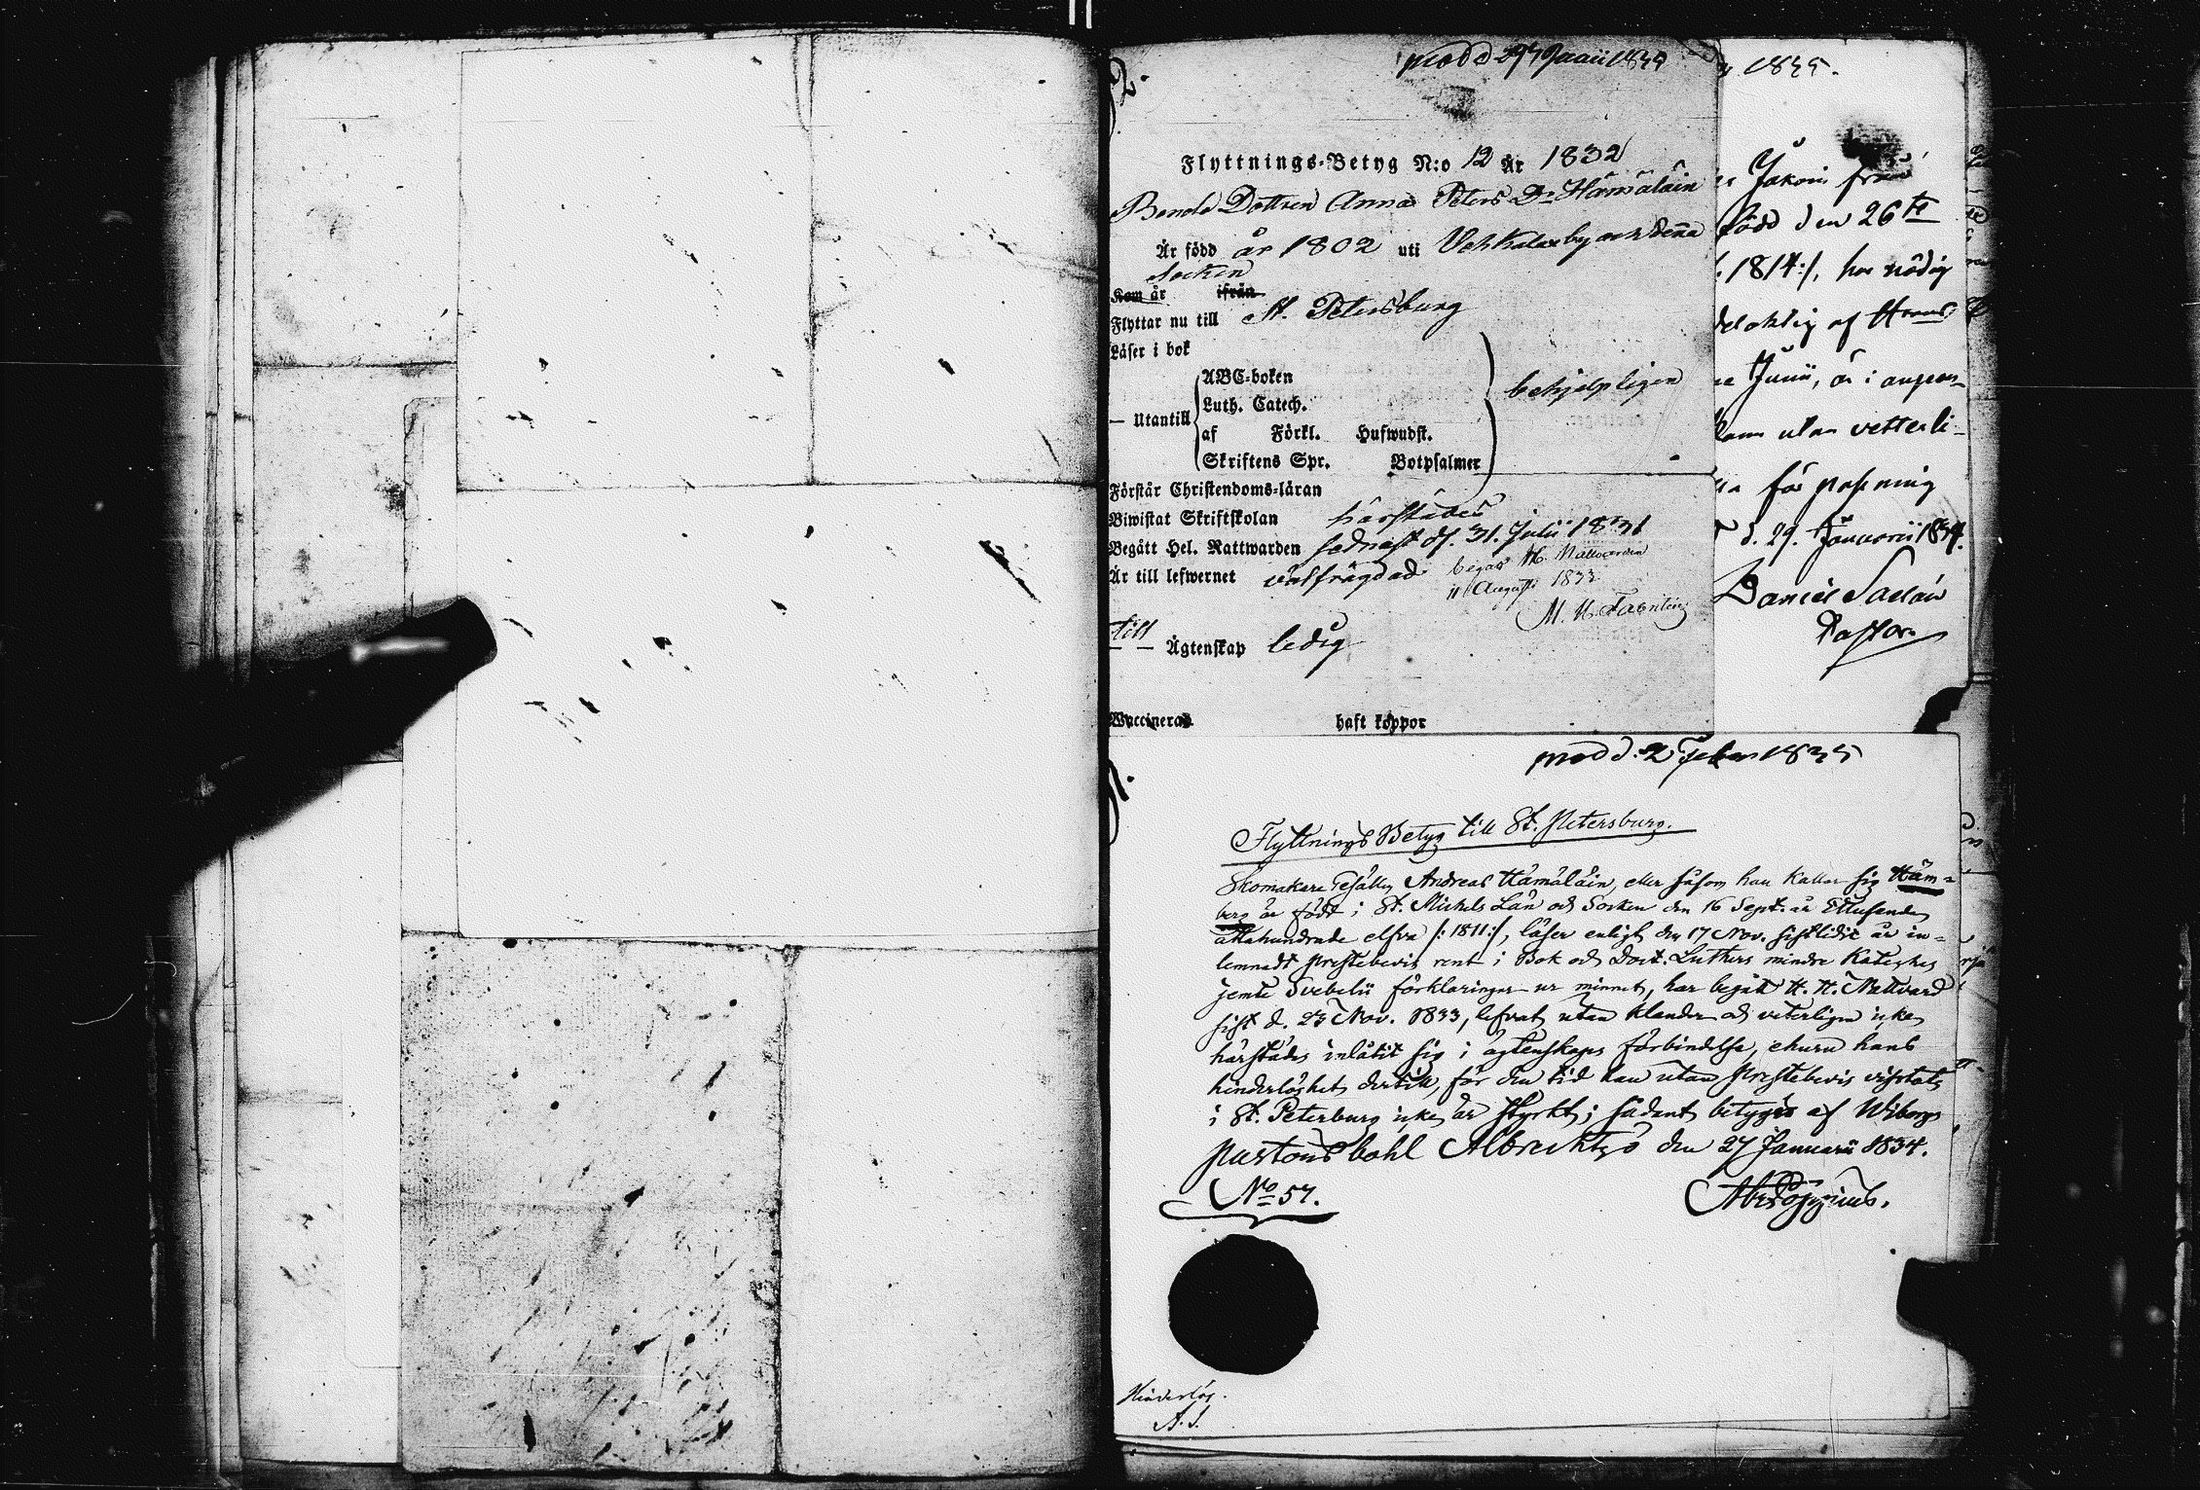 2.
prod d 29 Januarii 1834
Flyttnings-Betyg N:o 12 År 1832
Bonde Dottren Anna Peters D:r Hämäläin
Är född år 1802 uti Vehkalax by och denna
Socken
Kom år ifrån
Flyttar nu till St. Petersburg
Läser i bok
ABC-boken
Luth. Catech.
— Utantill
af Förkl. Hufwudst.
Skriftens Spr. Botpsalmer
behjelpligen
Förstår Christendoms-läran
Biwistat Skriftskolan härstädes
Begått Hel. Nattwarden sednast d. 31. Julii 1831
Är till lefwernet välfrägdad
begått H. Nattvarden
11 Augusti 1833
till Ägtenskap ledig
Vaccinerad haft koppor
1834.
Jakob från
född den 26te
1814:/, har nödig
delaktig af
Junii, är i
utan vetterli-
för
d. 29. Januarii 1834.
Daniel
Pastor.
prod d. 2 Febr 1834
Flyttnings Betyg till St. Petersburg.
Skomakare Gesällen Andreas Hämäläin, eller såsom han kallar sig Häm-
berg är född i St. Michels Län och Socken den 16 Sept. år Ettusende
åttahundrade elfva /: 1811:/, läser enligt den 17 Nov. sistlidit år in-
lemnadt prestebevis rent i Bok och Doct. Luthers mindre Kateches
jemte Svebelii förklaringar ur minnet, har begått H. H. Nattvard
sist d. 23 Nov. 1833, lefvat utan klander och veterligen icke
härstädes inlåtit sig i ägtenskaps förbindelse, ehuru hans
hinderlöshet dertill, för den tid han utan prestebevis vistats
i St. Peterburg icke är styrkt; sådant betygas af Wiborgs
pastors bohl Albrechtsö den 27 Januarii 1834.
No 57.
Hinderlös.
A. S.